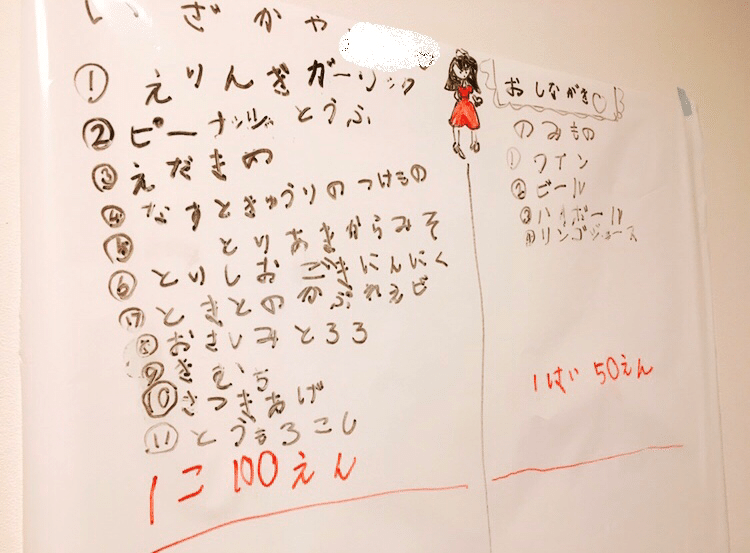 いざかや
① えりんぎガーリック
② ピーナッツとうふ
③ えだまめ
④ なすときゅうりのつけもの
⑤ とりあきからみそ
⑥ とりしおごきにんにく
⑦ ときとのかぶれえピ
⑧ おさしみとろろ
⑨
⑩ さつきあげ
⑪ とうもろこし
1こ100えん
おしながき♡
のみもの
① ワイン
② ビール
③ ハイボール
④ リンゴジュース
1はい50えん